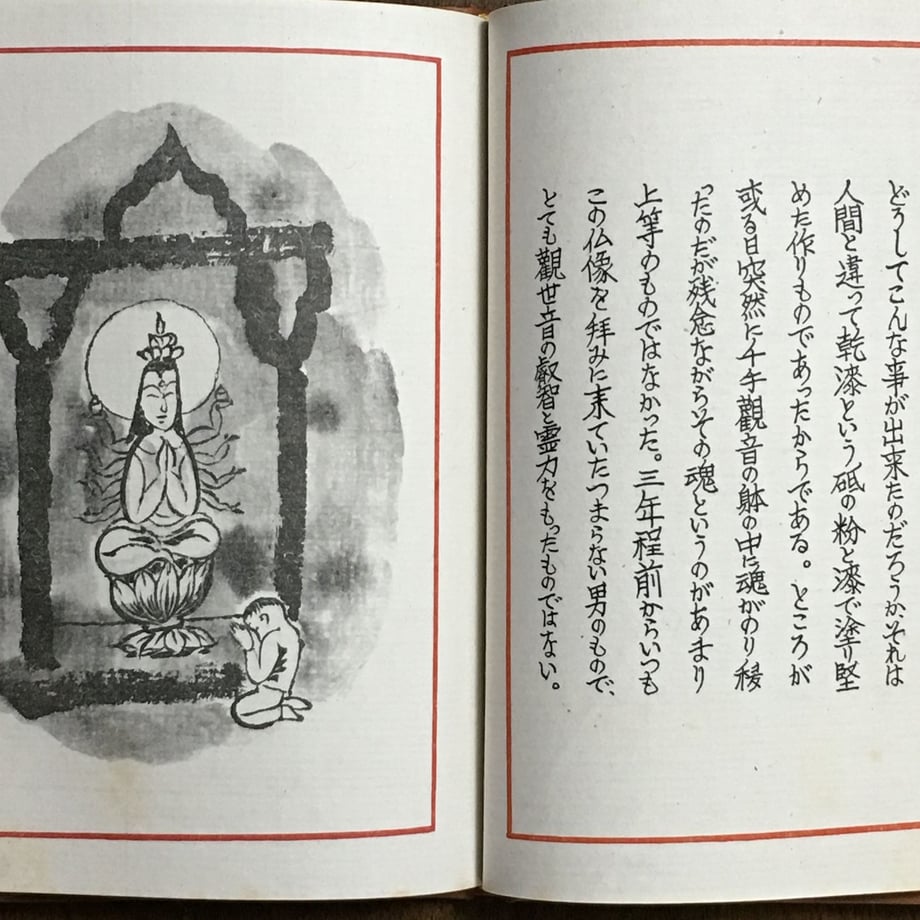 どうしてこんな事が出来たのだろうかそれは
人間と違って乾漆という砥の粉と漆で塗り堅
めた作りものであったからである。ところが
或る日突然に千手觀音の躰の中に魂がのり移
ったのだが残念ながらその魂というのがあまり
上等のものではなかった。三年程前からいつも
この仏像を拜みに来ていたつまらない男のもので、
とても觀世音の叡智と霊力をもったものではない。